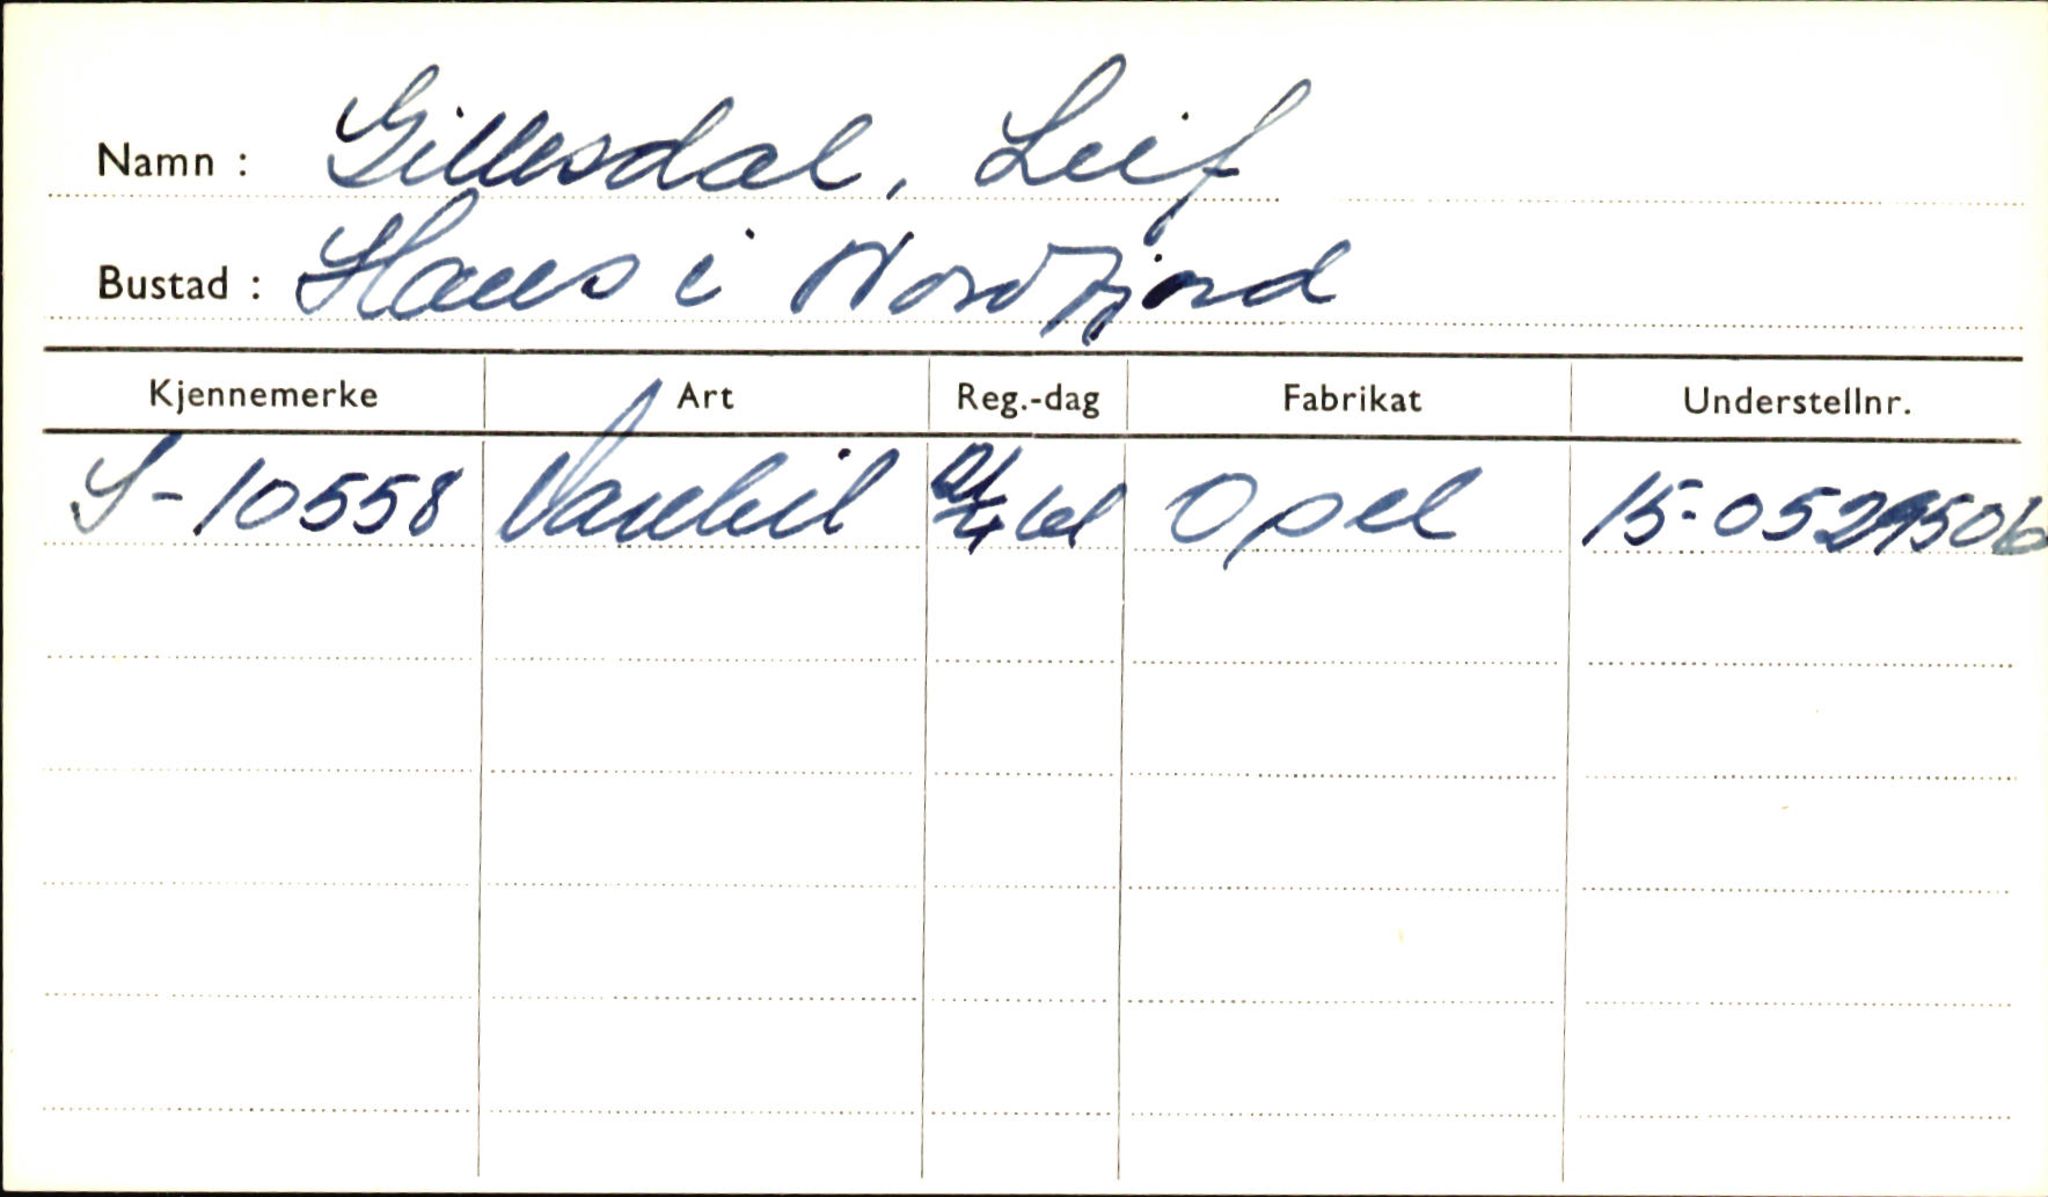 Namn : Gillesdal, Leif
Bustad : Haus i Nordfjord
Kjennemerke Art Reg.-dag Fabrikat Understellnr.
S-10558 Varebil Opel 15-0529506